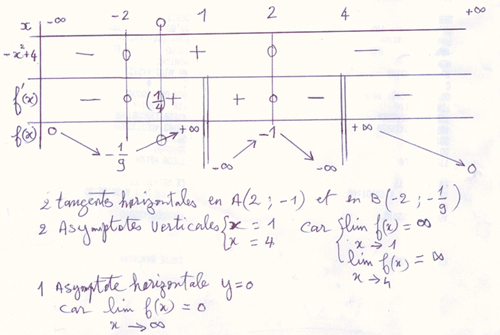 x -∞ -2 0 1 2 4 +∞
-x²+4 - 0 + 0 -
f'(x) - 0 (1/4) + + 0 - -
f(x) 0 -1/9 0 +∞ -∞ -1 -∞ +∞ 0
2 tangentes horizontales en A(2 ; -1) et en B(-2 ; -1/9)
2 Asymptotes verticales { x = 1 car { lim f(x) = ∞
x = 4 x → 1
lim f(x) = ∞
x → 4
1 Asymptote horizontale y = 0
car lim f(x) = 0
x → ∞